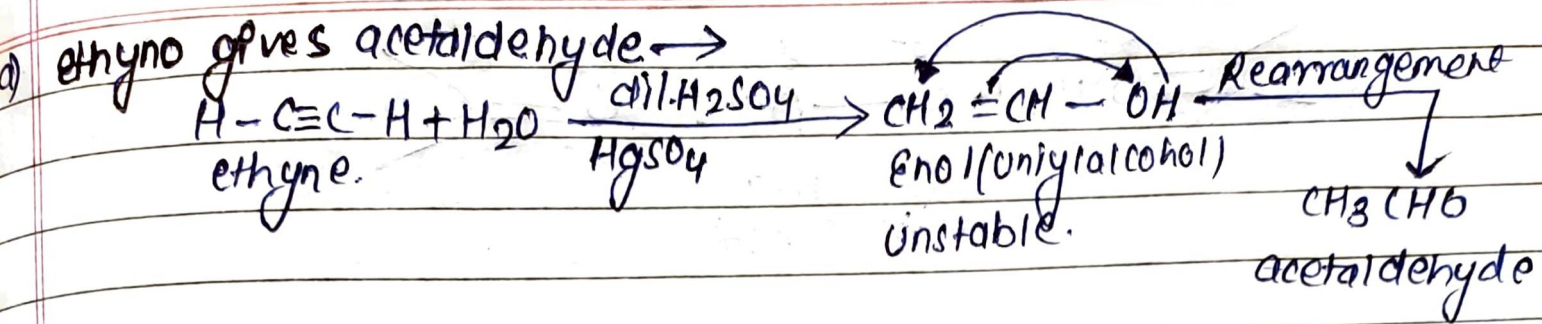 a) ethyno gives acetaldehyde →
H - C≡C - H + H2O dil.H2SO4 → CH2 = CH — OH Rearrangement
HgSO4
ethyne. Enol (uniylalcohol)
unstable. CH3CHO
acetaldehyde